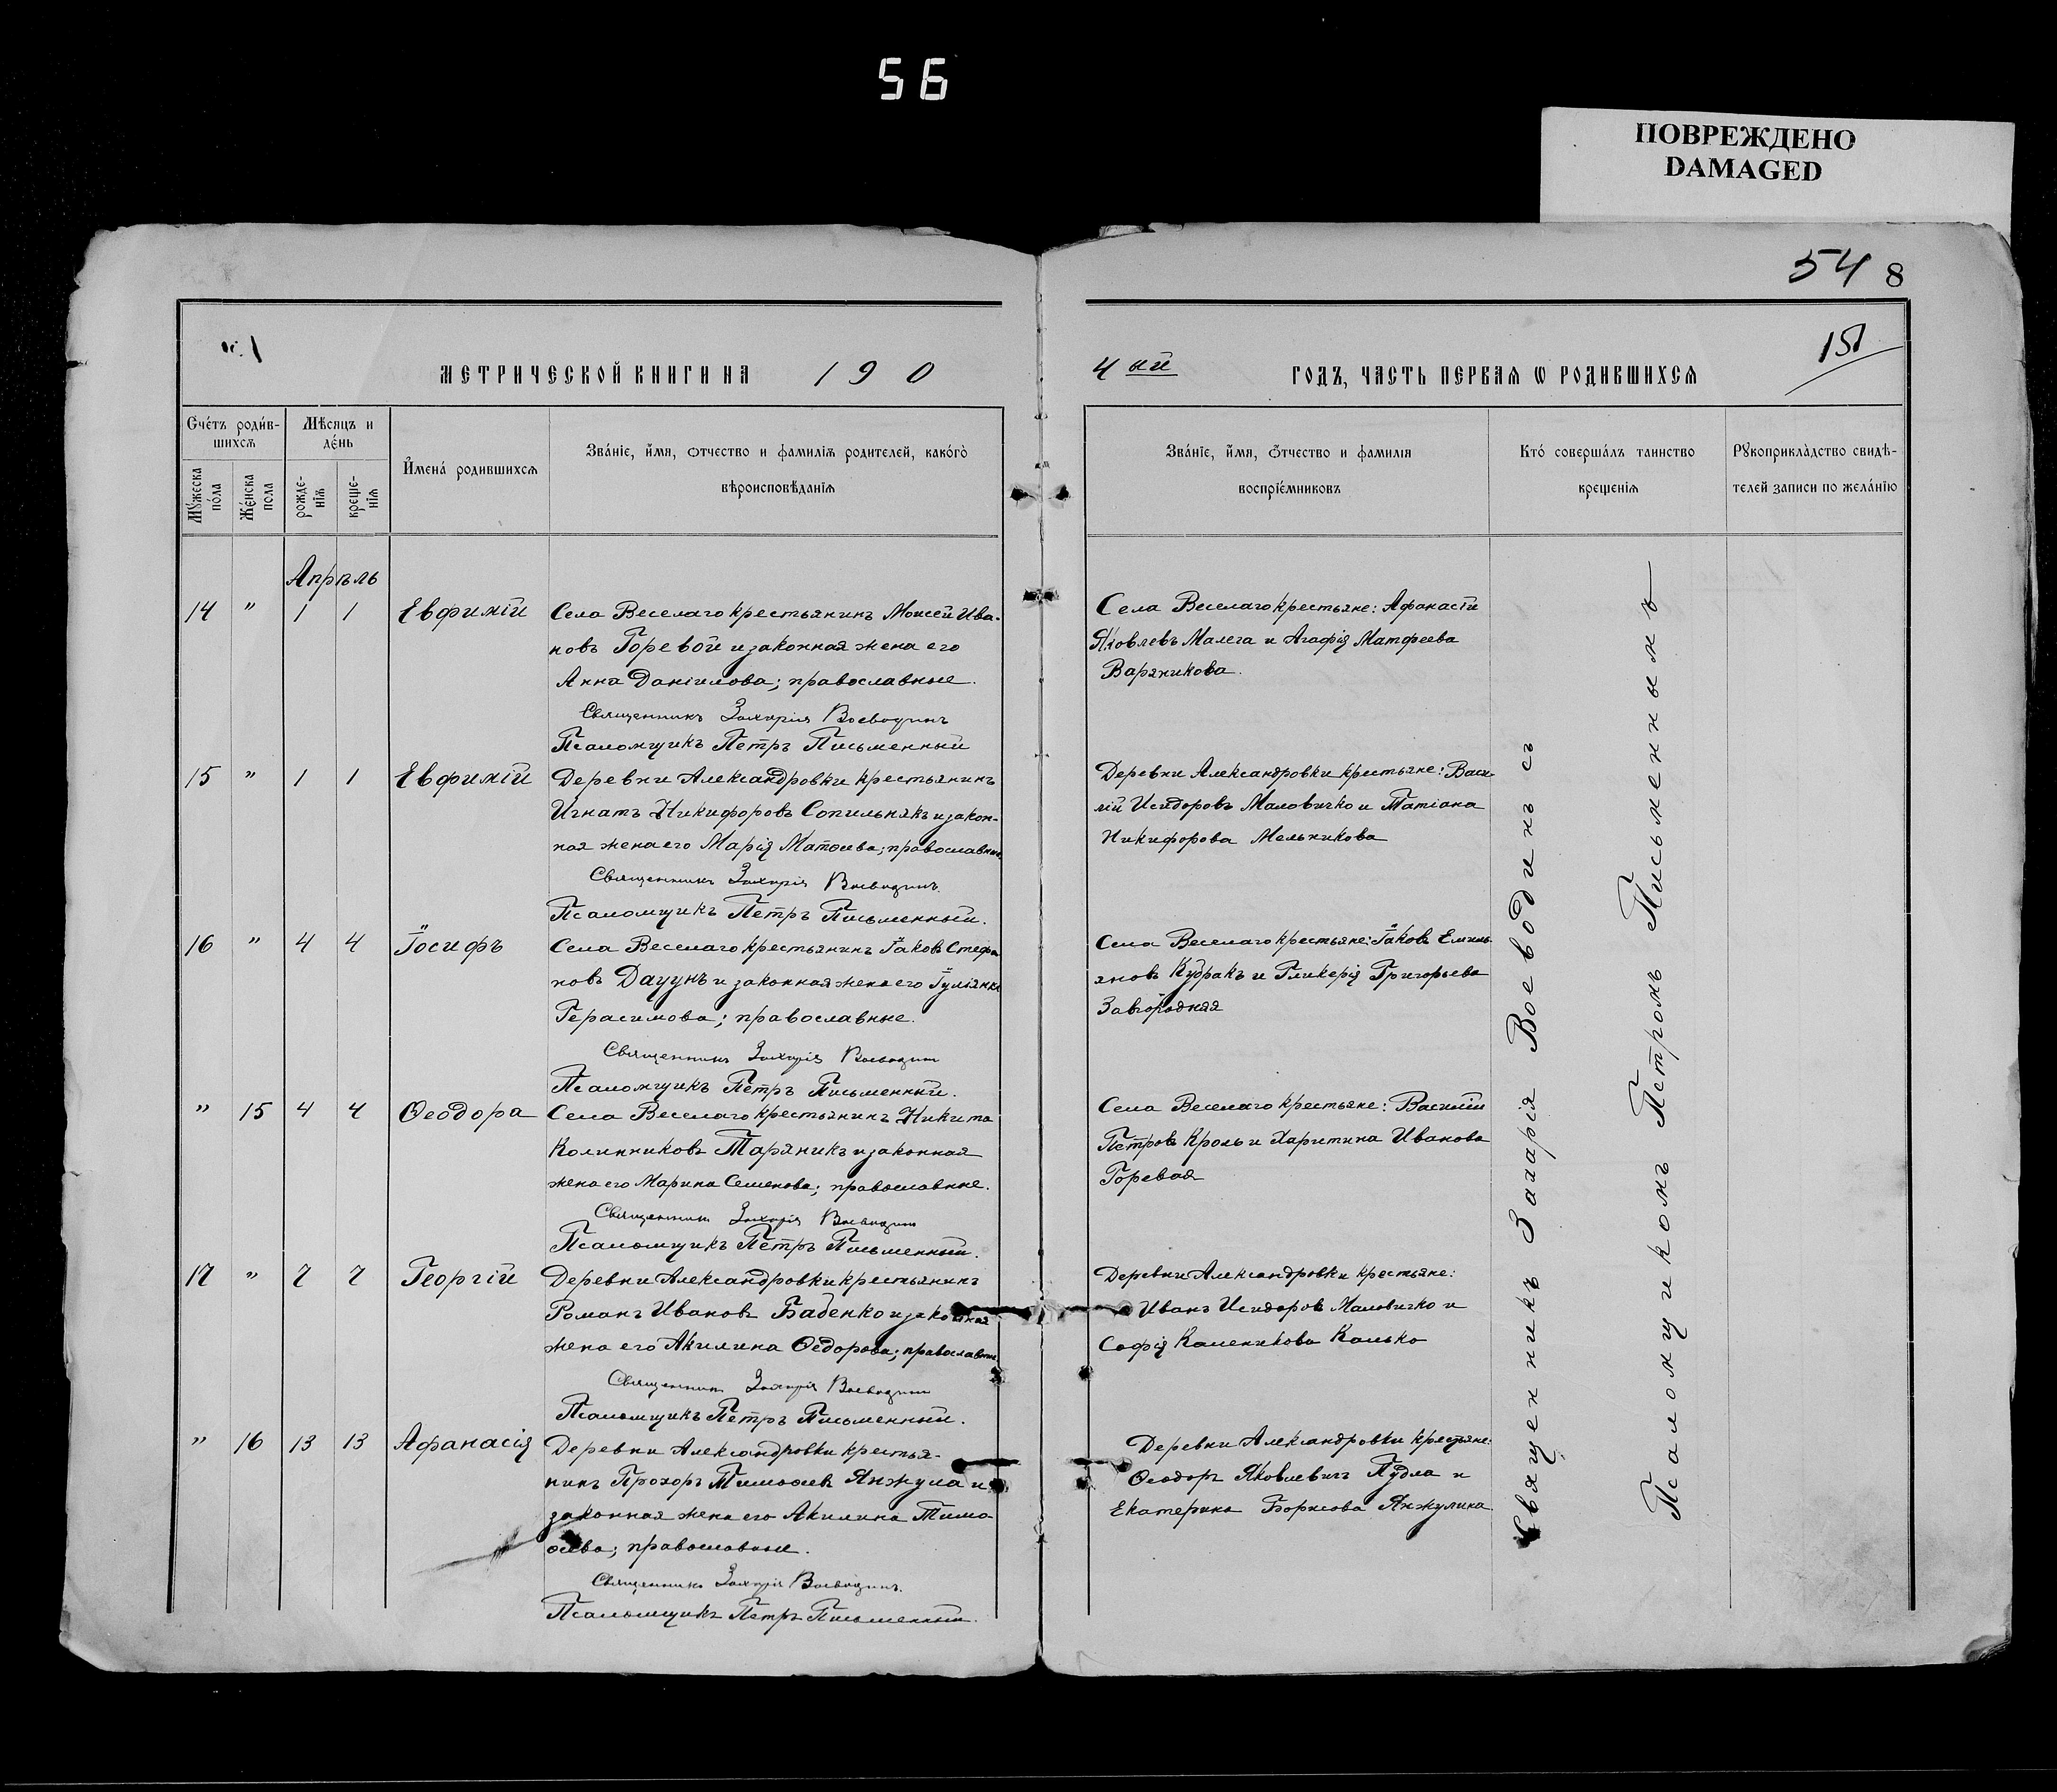 56
ПОВРЕЖДЕНО
DAMAGED
54 8
151
МЕТРИЧЕСКОЙ КНИГИ НА 190
4 ый ГОДЪ, ЧАСТЬ ПЕРВАЯ Ѡ РОДИВШИХСѦ
Счéтъ роди́в-
шихсѧ
Мѣсяцъ и
дéнь
Мꙋжеска
пóла
Жéнска
пола
рожде-
нїѧ
креще-
нїѧ
И҆́мена́ родившихсѧ
Зва́нїе, и҆́мя, ѻтчество и фамилїѧ родителей, како́гѡ
вѣроисповѣданїѧ
Зва́нїе, и҆́мя, ѻ҆́тчество и фамилїя
воспрїе́мниковъ
Кто́ соверша́лъ таинство
крещенїѧ
Рꙋкоприкла́дство свидѣ-
телей записи по жела́нїю
Апрѣль
14 " 1 1 Евфимій Села Веселаго крестьянинъ Моисей Ива-
новъ Горевой и законная жена его
Анна Даніилова; православные.
Священникъ Захарія Воеводинъ
Псаломщикъ Петръ Письменный
Села Веселаго крестьяне: Афанасій
Яковлевъ Малега и Агафія Матфеева
Варяникова.
15 " 1 1 Евфимій Деревни Александровки крестьянинъ
Игнатъ Никифоровъ Сопильнякъ и закон-
ная жена его Марія Матѳеева; православные
Священникъ Захарія Воеводинъ.
Псаломщикъ Петръ Письменный.
Деревни Александровки крестьяне: Васи-
лій Исидоровъ Маловичко и Татіана
Никифорова Мельникова
16 " 4 4 Іосифъ Села Веселаго крестьянинъ Іаковъ Стефа
новъ Даудъ и законная жена его Іуліанна
Герасимова; православные.
Священникъ Захарія Воеводинъ
Псаломщикъ Петръ Письменный.
Села Веселаго крестьяне: Іаковъ Емиль-
яновъ Кудракъ и Гликерія Григорьева
Завгородняя
" 15 4 4 Ѳеодора Села Веселаго крестьянинъ Никита
Калинниковъ Таряникъ и законная
жена его Марина Семенова; православные.
Священникъ Захарія Воеводинъ
Псаломщикъ Петръ Письменный.
Села Веселаго крестьяне: Василій
Петровъ Кроль и Харитина Иванова
Горевая
17 " 7 7 Георгій Деревни Александровки крестьянинъ
Романъ Ивановъ Бабенко и законная
жена его Акилина Ѳедорова; православные
Священникъ Захарія Воеводинъ
Псаломщикъ Петръ Письменный.
Деревни Александровки крестьяне:
Иванъ Исидоровъ Маловичко и
Софія Каленикова Калько
" 16 13 13 Афанасія Деревни Александровки крестья-
нинъ Прохоръ Тимоѳеевъ Янжула и
законная жена его Акилина Тимо-
ѳеева; православные.
Священникъ Захарія Воеводинъ.
Псаломщикъ Петръ Письменный.
Деревни Александровки крестьяне:
Ѳеодоръ Яковлевичъ Пудла и
Екатерина Борисова Янжулина
Священникъ Захарія Воеводинъ съ
Псаломщикомъ Петромъ Письменнымъ